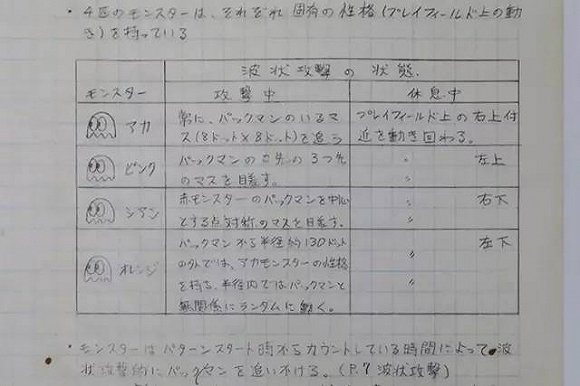 ・4匹のモンスターは、それぞれ固有の性格(プレイフィールド上の動
き)を持っている
波状攻撃の状態
モンスター 攻撃中 休息中
アカ 常に、パックマンのいるマ プレイフィールド上の右上付
ス(8ドット×8ドット)を追う 近を動き回わる。
ピンク パックマンの口先の3つ先 〃 左上
のマスを目差す。
シアン 赤モンスターのパックマンを中心 〃 右下
とする点対称のマスを目差す。 〃
オレンジ パックマンから半径約130ドット 〃 左下
の外では、アカモンスターの性格
を持ち、半径内ではパックマンと 〃
無関係にランダムに動く。
・モンスターはパターンスタート時からカウントしている時間によって、波
状攻撃的にパックマンを追いかける。(P.7 波状攻撃)